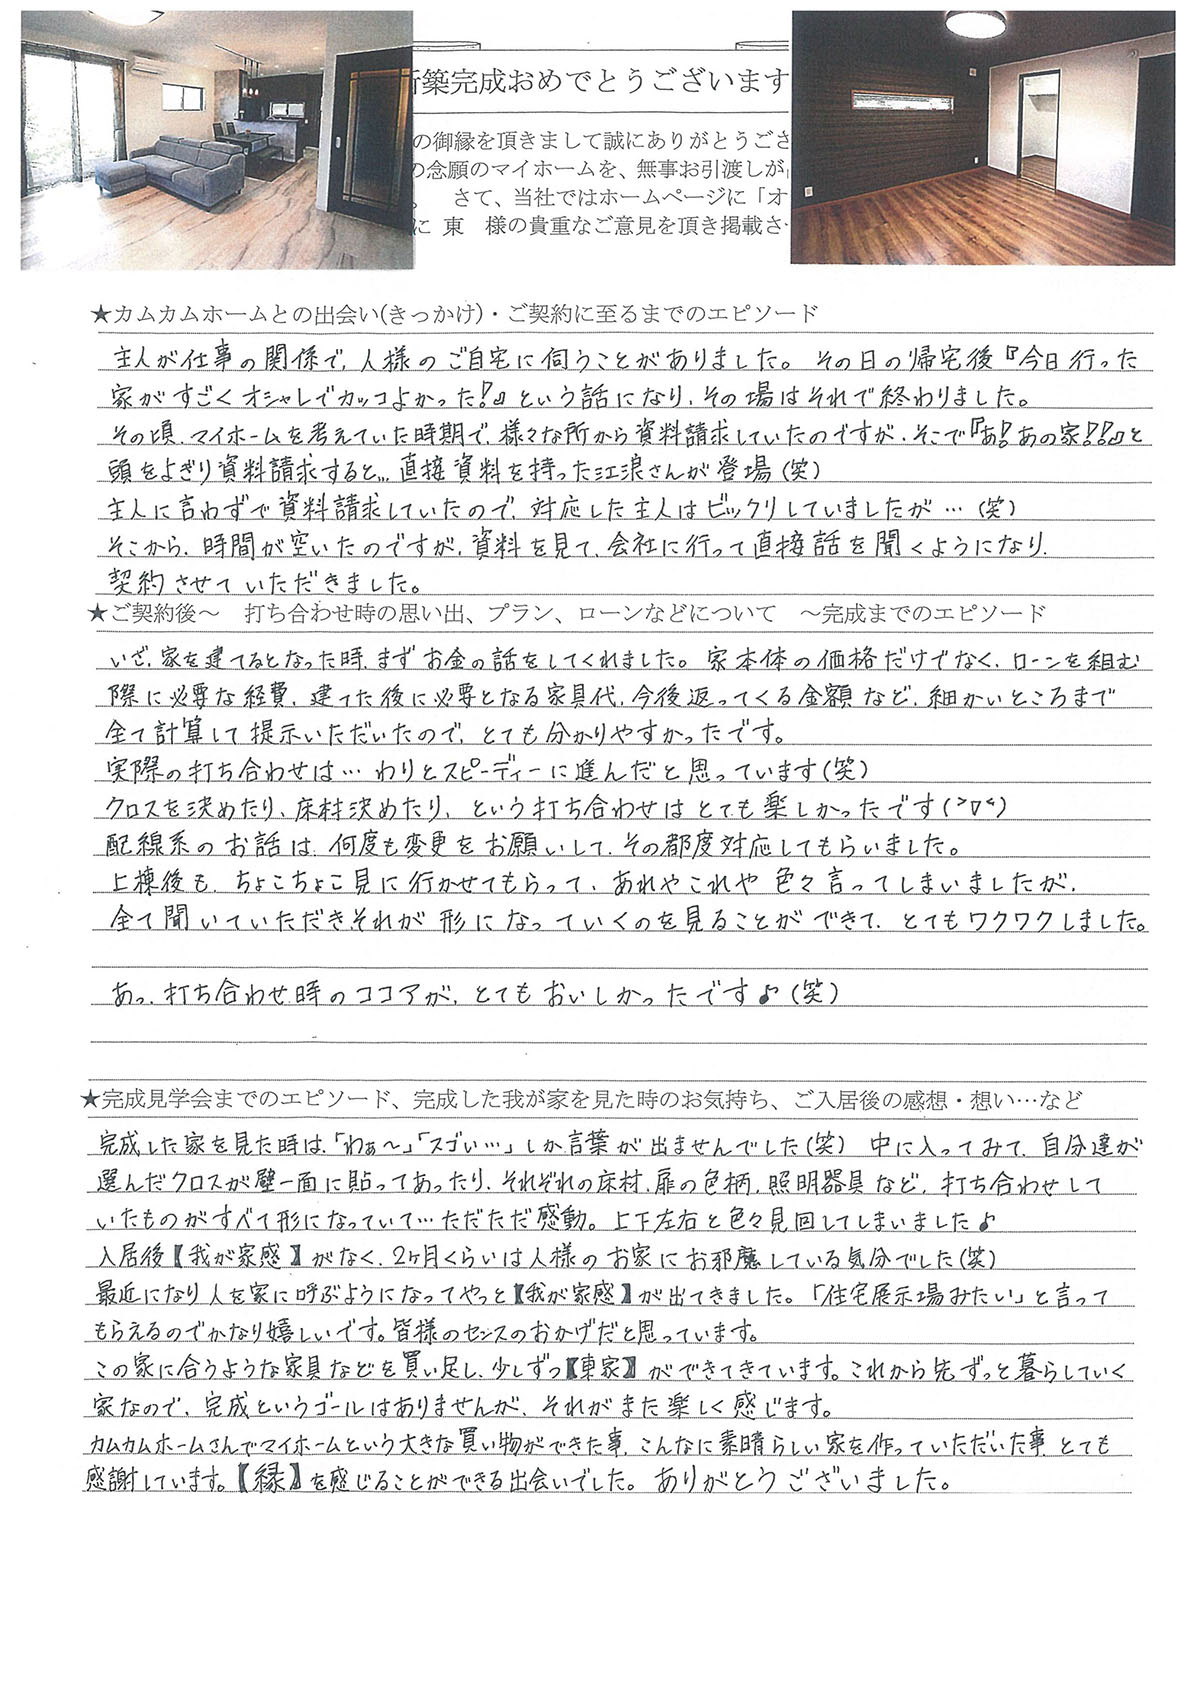 新築完成おめでとうございます
の御縁を頂きまして誠にありがとうござ
の念願のマイホームを、無事お引渡しが
。 さて、当社ではホームページに「オ
に 東 様の貴重なご意見を頂き掲載さ
★カムカムホームとの出会い(きっかけ)・ご契約に至るまでのエピソード
主人が仕事の関係で、人様のご自宅に伺うことがありました。その日の帰宅後『今日行った
家がすごくオシャレでカッコよかった!』という話になり、その場はそれで終わりました。
その頃、マイホームを考えていた時期で、様々な所から資料請求していたのですが、そこで『あ!あの家!!』と
頭をよぎり資料請求すると… 直接資料を持った江浪さんが登場(笑)
主人に言わずで資料請求していたので、対応した主人はビックリしていましたが…(笑)
そこから、時間が空いたのですが、資料を見て、会社に行って直接話を聞くようになり、
契約させていただきました。
★ご契約後～ 打ち合わせ時の思い出、プラン、ローンなどについて ～完成までのエピソード
いざ、家を建てるとなった時、まずお金の話をしてくれました。家本体の価格だけでなく、ローンを組む
際に必要な経費、建てた後に必要となる家具代、今後返ってくる金額など、細かいところまで
全て計算して提示いただいたので、とても分かりやすかったです。
実際の打ち合わせは…わりとスピーディーに進んだと思っています(笑)
クロスを決めたり、床材決めたり、という打ち合わせはとても楽しかったです(>▽<)
配線系のお話は、何度も変更をお願いして、その都度対応してもらいました。
上棟後も、ちょこちょこ見に行かせてもらって、あれやこれや色々言ってしまいましたが、
全て聞いていただき、それが形になっていくのを見ることができて、とてもワクワクしました。
あっ、打ち合わせ時のココアが、とてもおいしかったです♪(笑)
★完成見学会までのエピソード、完成した我が家を見た時のお気持ち、ご入居後の感想・想い…など
完成した家を見た時は、「わぁ～」「スゴい…」しか言葉が出ませんでした(笑) 中に入ってみて、自分達が
選んだクロスが壁一面に貼ってあったり、それぞれの床材、扉の色柄、照明器具など、打ち合わせして
いたものがすべて形になっていて…ただただ感動。上下左右と色々見回してしまいました♪
入居後【我が家感】がなく、2ヶ月くらいは人様のお家にお邪魔している気分でした(笑)
最近になり人を家に呼ぶようになってやっと【我が家感】が出てきました。「住宅展示場みたい」と言って
もらえるのでかなり嬉しいです。皆様のセンスのおかげだと思っています。
この家に合うような家具などを買い足し、少しずつ【東家】ができてきています。これから先ずっと暮らしていく
家なので、完成というゴールはありませんが、それがまた楽しく感じます。
カムカムホームさんでマイホームという大きな買い物ができた事、こんなに素晴らしい家を作っていただいた事、とても
感謝しています。【縁】を感じることができる出会いでした。ありがとうございました。